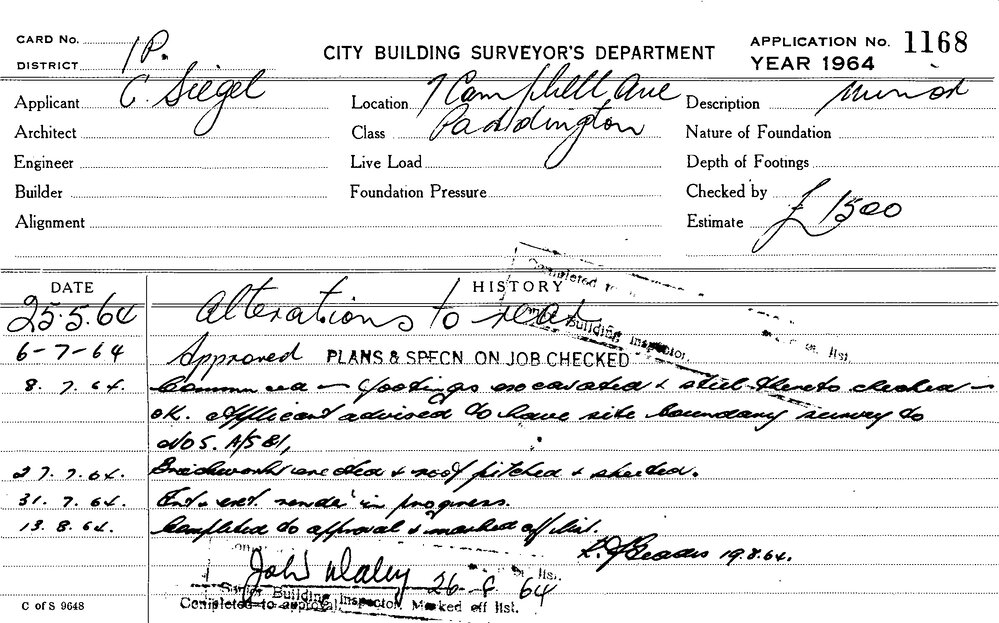 CARD No.
DISTRICT 1P.
CITY BUILDING SURVEYOR'S DEPARTMENT
APPLICATION No. 1168
YEAR 1964
Applicant C. Siegel
Location 7 Campbell Ave
Description minor
Architect
Class Paddington
Nature of Foundation
Engineer
Live Load
Depth of Footings
Builder
Foundation Pressure
Checked by
Alignment
Estimate £1500
DATE HISTORY
25.5.64 Alterations to rear
6-7-64 Approved PLANS & SPECN. ON JOB CHECKED
8. 7. 64. Commenced - footings excavated & steel thereto checked -
OK. Applicant advised to have site boundary survey to
NOS.
27. 7. 64. Brickwork erected & roof pitched & sheeted.
31. 7. 64. Int & ext. render in progress.
13. 8. 64. Completed to approval & marked off list.
19.8.64.
John Daley 26-8-64
Senior Building Inspector.
Completed to approval. Marked off list.
C of S 9648
Completed to
Building Inspector.
list.